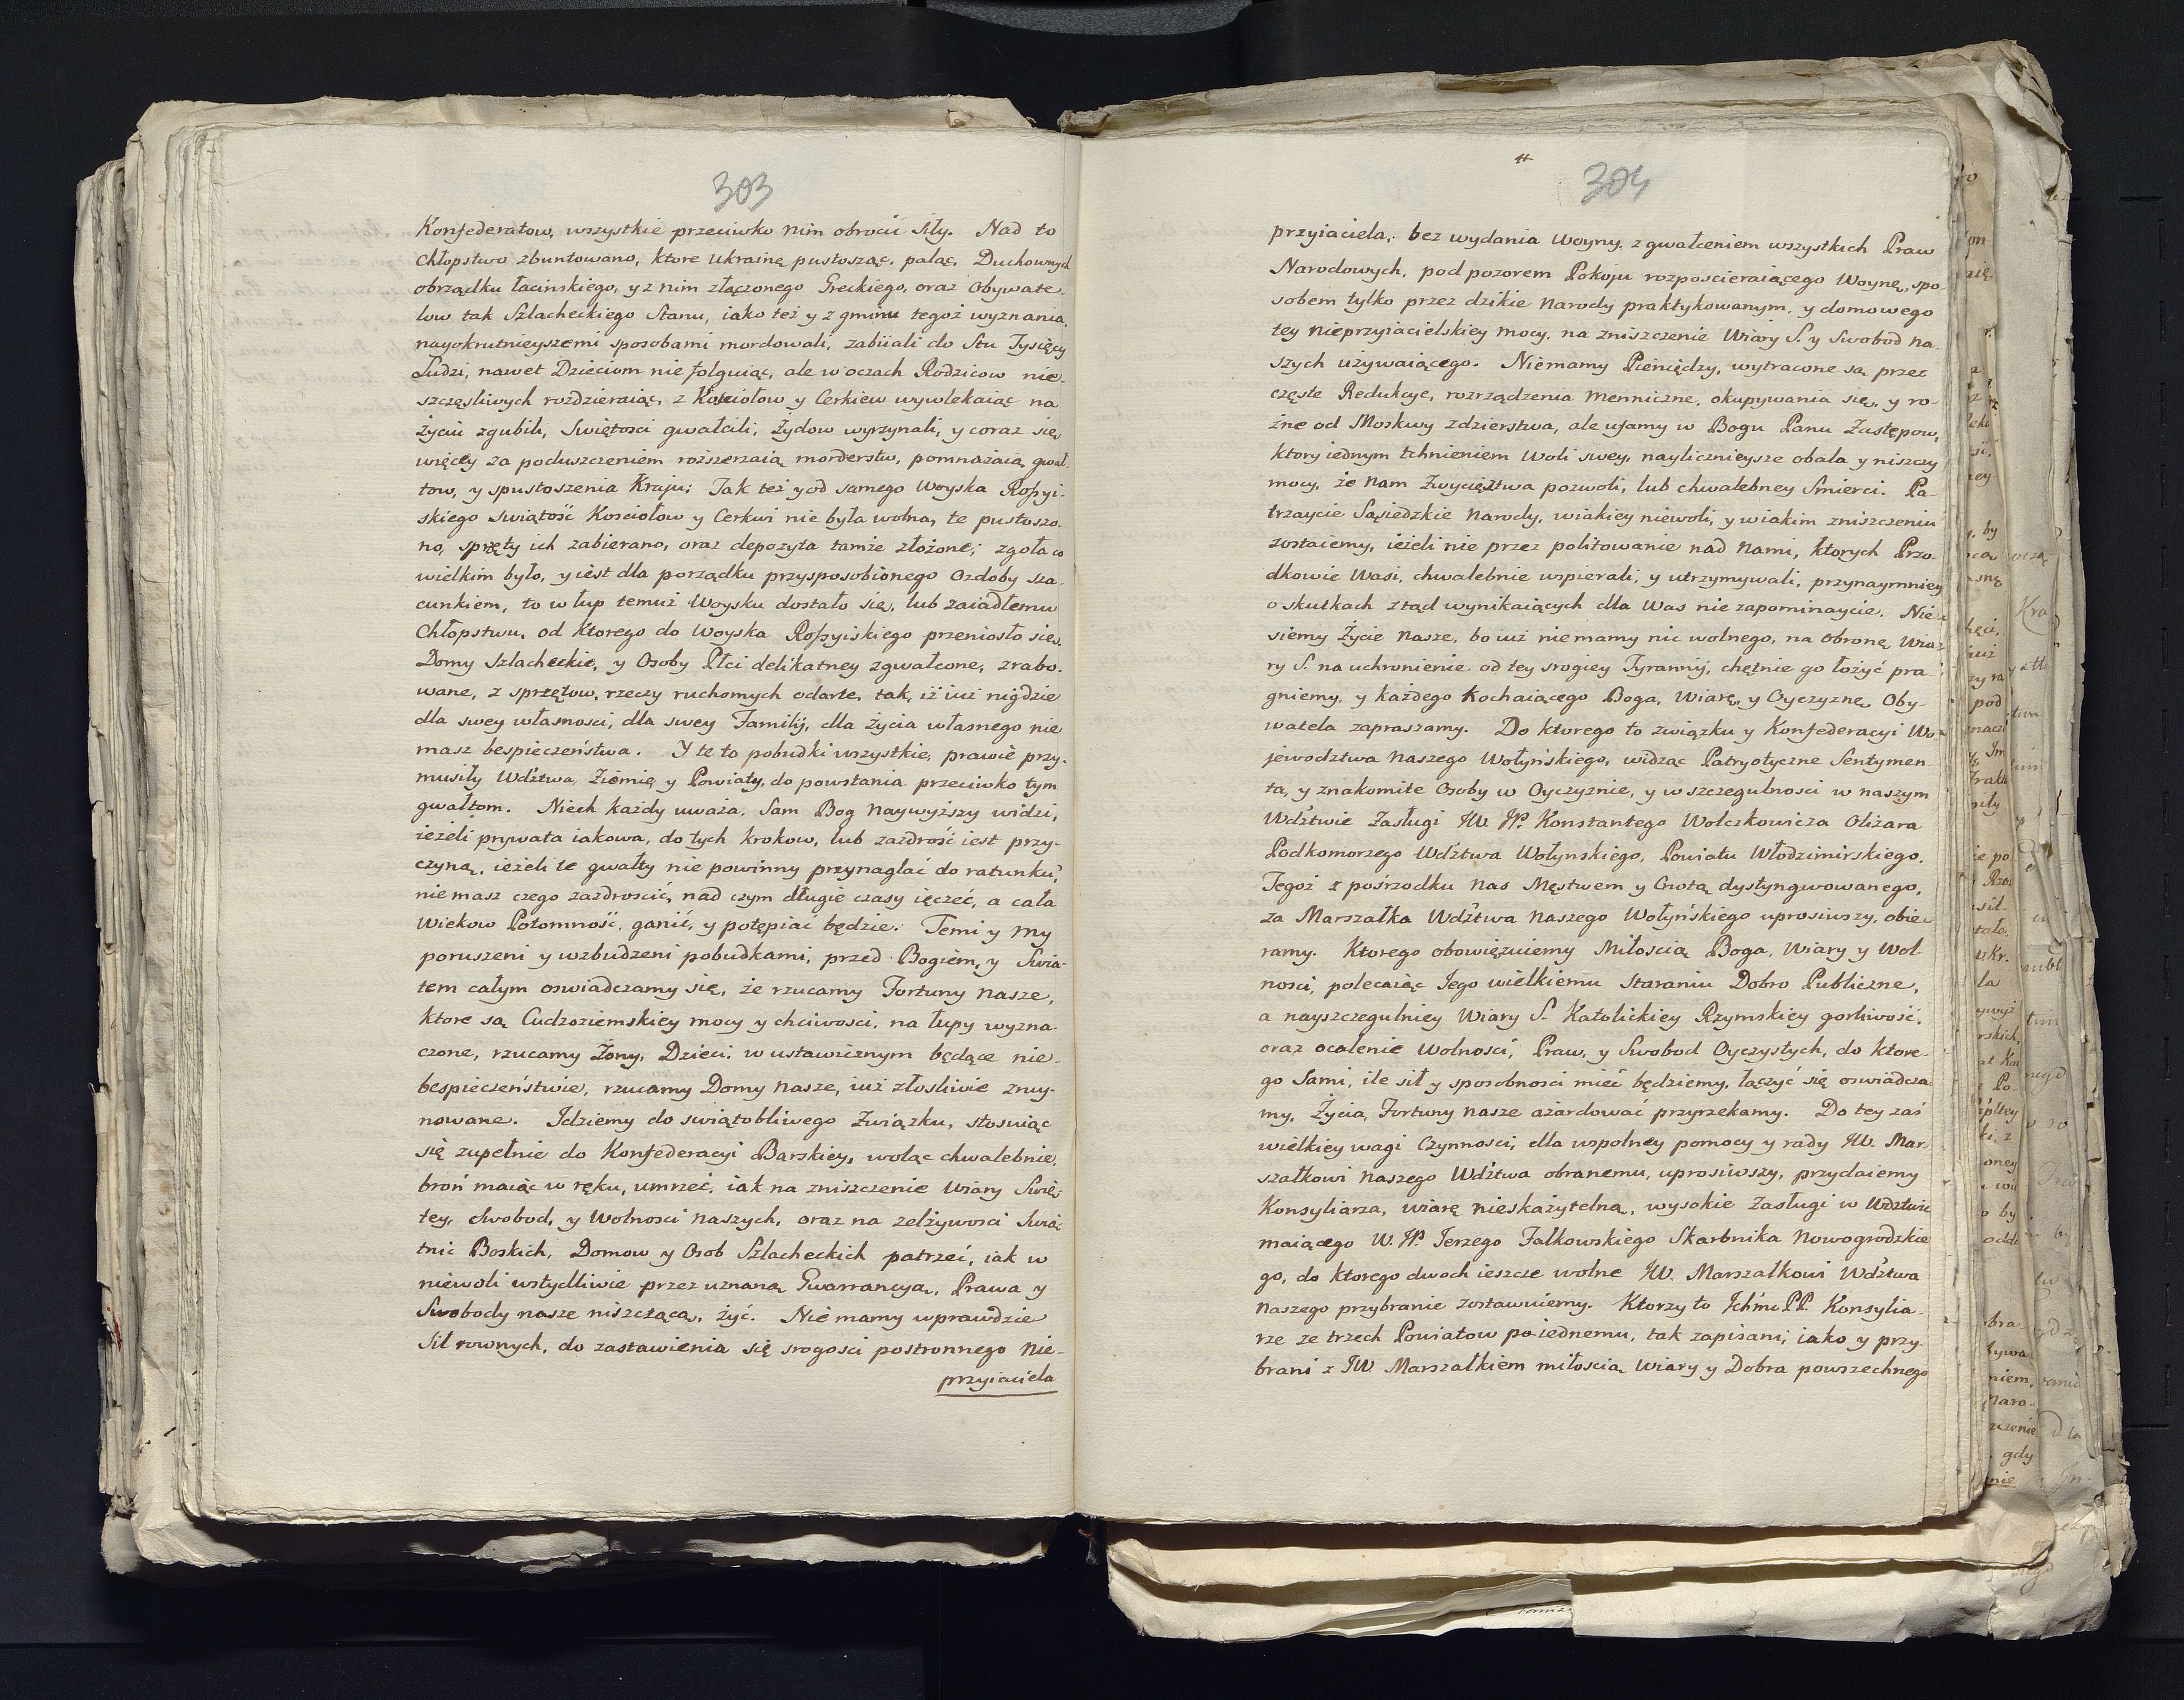 303
Konfederatow, wszystkie przeciwko nim obrocić siły. Nad to
Chłopstwo zbuntowano, ktore Ukrainę pustosząc, paląc, Duchownych
obrządku łacinskiego, y z nim złączonego Greckiego, oraz Obywate-
low tak Szlacheckiego Stanu, iako też y z gminu tegoż wyznania,
nayokrutnieyszemi sposobami mordowali, zabiiali do Stu Tysięcy
Ludzi, nawet Dzieciom nie folguiąc, ale w oczach Rodzicow nie-
szczęsliwych rozdzieraiąc, z Kościołow y Cerkiew wywlekaiąc na
życiu zgubili, Swiętosci gwałcili, Żydow wyrzynali, y coraz się
więcey za poduszczeniem rozszerzaią morderstw, pomnażaią gwał-
tow, y spustoszenia Kraju; Tak też y od samego Woyska Roßyi-
skiego swiątość Kosciołow y Cerkwi nie była wolna, te pustoszo-
no, sprzęty ich zabierano, oraz depozyta tamże złożone; zgoła co
wielkim było, y iest dla porządku przysposobionego Ozdoby sza-
cunkiem, to w łup temuż Woysku dostało się, lub zaiadłemu
Chłopstwu, od Ktorego do Woyska Roßyiskiego przeniosło się.
Domy szlacheckie, y Osoby Płci delikatney zgwałcone, zrabo-
wane, z sprzętow, rzeczy ruchomych odarte, tak, iż iuż nigdzie
dla swey własnosci, dla swey Familij, dla życia własnego nie
masz bespieczeństwa. Y te to pobudki wszystkie, prawie przy-
musiły Wdztwa, Ziemię y Powiaty, do powstania przeciwko tym
gwałtom. Niech każdy uważa, Sam Bog Naywyższy widzi,
ieżeli prywata iakowa, do tych krokow, lub zazdrość iest przy-
czyną, ieżeli te gwałty nie powinny przynaglać do ratunku,
nie masz czego zazdroscić, nad czym długie czasy ięczeć, a cała
Wiekow Potomność, ganić, y potępiać będzie. Temi y my
poruszeni y wzbudzeni pobudkami, przed Bogiem, y Swia-
tem całym oswiadczamy się, że rzucamy Fortuny nasze,
ktore są Cudzoziemskiey mocy y chciwosci, na łupy wyzna-
czone, rzucamy Żony, Dzieci, w ustawicznym będące nie-
bespieczeństwie, rzucamy Domy nasze, iuż złosliwie zruy-
nowane. Jdziemy do swiątobliwego Związku, stosuiąc
się zupełnie do Konfederacyi Barskiey, woląc chwalebnie,
broń maiąc w ręku, umrzeć, iak na zniszczenie Wiary Swię-
tey, Swobod, y Wolnosci naszych, oraz na zelżywosci Swią-
tnic Boskich, Domow y Osob Szlacheckich patrzeć, iak w
niewoli wstydliwie przez uznaną Gwarrancyą, Prawa y
Swobody nasze niszczącą, żyć. Nie mamy wprawdzie
Sił rownych, do zastawienia się srogosci postronnego Nie-
przyiaciela
304
przyiaciela, bez wydania Woyny, z gwałceniem wszystkich Praw
Narodowych, pod pozorem Pokoju rozposcieraiącego Woynę, spo-
sobem tylko przez dzikie Narody praktykowanym, y domowego
tey nieprzyiacielskiey mocy, na zniszczenie Wiary S. y Swobod na-
szych używaiącego. Niemamy Pieniędzy, wytracone są przez
częste Redukcye, rozrządzenia menniczne, okupywania się, y ro-
żne od Moskwy zdzierstwa, ale ufamy w Bogu Panu Zastępow,
ktory iednym tchnieniem Woli swey, naylicznieysze obala y niszczy
mocy, że nam Zwycięztwa pozwoli, lub chwalebney Smierci. Pa-
trzaycie Sąsiedzkie Narody, w iakiey niewoli, y w iakim zniszczeniu
zostaiemy, ieżeli nie przez politowanie nad Nami, ktorych Przo-
dkowie Wasi, chwalebnie wspierali, y utrzymywali, przynaymniey
o skutkach ztąd wynikaiących dla Was nie zapominaycie. Nie-
siemy Życie nasze, bo iuż nie mamy nic wolnego, na Obronę Wia-
ry S. na uchronienie od tey srogiey Tyrannij, chętnie go łożyć pra-
gniemy, y każdego Kochaiącego Boga, Wiarę, y Oyczyznę Oby-
watela zapraszamy. Do ktorego to związku y Konfederacyi Wo-
jewodztwa naszego Wołyńskiego, widząc Patryotyczne Sentymen-
ta, y znakomite Osoby w Oyczyznie, y w szczegulnosci w naszym
Wdztwie Zasługi JW. JP. Konstantego Wolczkowicza Olizara
Podkomorzego Wdztwa Wołynskiego, Powiatu Włodzimirskiego,
Tegoż z pośrzodku nas Męstwem y Cnotą dystyngwowanego,
za Marszałka Wdztwa naszego Wołyńskiego uprosiwszy, obie-
ramy. Ktorego obowięzuiemy Miłoscią Boga, Wiary y Wol-
nosci, polecaiąc Jego wielkiemu Staraniu Dobro Publiczne,
a nayszczegulniey Wiary S. Katolickiey Rzymskiey gorliwość,
oraz ocalenie Wolnosci, Praw, y Swobod Oyczystych, do ktore-
go sami, ile sił y sposobnosci mieć będziemy, łączyć się oswiadcza-
my, Życia, Fortuny nasze ażardować przyrzekamy. Do tey zaś
wielkiey wagi Czynnosci, dla wspolney pomocy y rady JW. Mar-
szałkowi naszego Wdztwa obranemu, uprosiwszy, przydaiemy
Konsyliarza, wiarę nieskażytelną, wysokie Zasługi w Wdztwie
maiącego W. JP. Jerzego Falkowskiego Skarbnika Nowogrodzkie-
go, do ktorego dwoch ieszcze wolne JW. Marszałkowi Wdztwa
naszego przybranie zostawuiemy. Ktorzy to Jchmć PP. Konsylia-
rze ze trzech Powiatow po iednemu, tak zapisani, iako y przy-
brani z JW Marszałkiem miłoscią Wiary y Dobra powszechnego